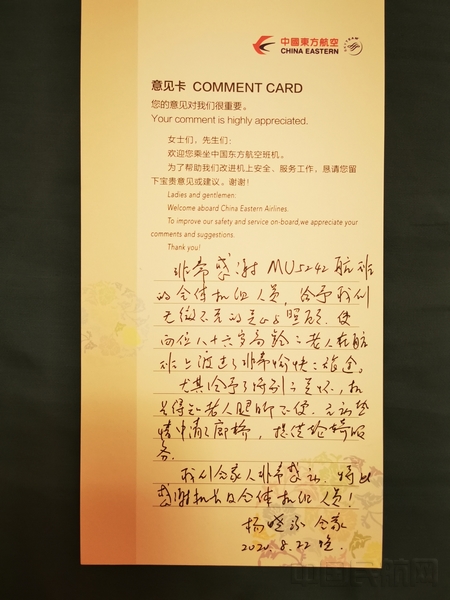 中國東方航空
CHINA EASTERN
意见卡 COMMENT CARD
您的意见对我们很重要。
Your comment is highly appreciated.
女士们，先生们：
欢迎您乘坐中国东方航空班机。
为了帮助我们改进机上安全、服务工作，恳请您留
下宝贵意见或建议。谢谢！
Ladies and gentlemen:
Welcome aboard China Eastern Airlines.
To improve our safety and service on-board,we appreciate your
comments and suggestions.
Thank you!
非常感谢 MU5242航班
的全体机组人员，给予我们
无微不至的关心与照顾，使
两位八十六岁高龄之老人在航
班上渡过了非常愉快之旅途。
尤其给予了特别之关怀，机
长得知老人腿脚不便，主动
申请了廊桥，提供轮椅服
务。
我们全家人非常感动，特此
感谢机长及全体机组人员！
杨 全家
2020.8.22 晚.
中国民航网